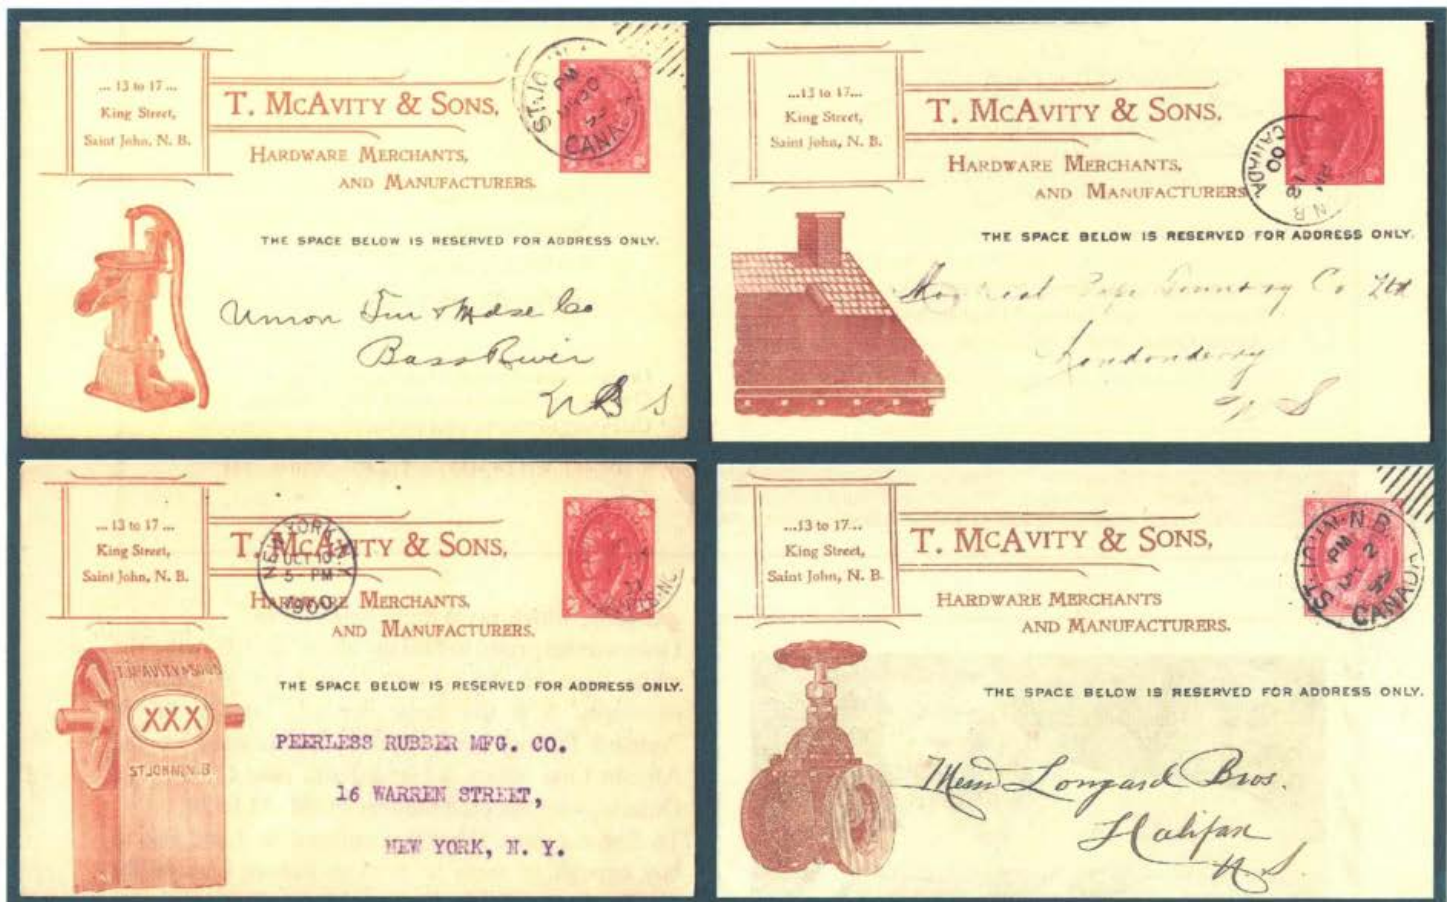 ... 13 to 17 ...
King Street,
Saint John, N. B.
T. McAvity & Sons,
Hardware Merchants,
and Manufacturers.
CANADA
PM
THE SPACE BELOW IS RESERVED FOR ADDRESS ONLY.
Union Fur & Mdse Co
Bass River
N S
...13 to 17...
King Street,
Saint John, N. B.
T. McAvity & Sons,
Hardware Merchants,
and Manufacturers
CANADA
00
N.B.
THE SPACE BELOW IS RESERVED FOR ADDRESS ONLY.
Montreal Pipe Foundry Co Ltd
Londonderry
N S
... 13 to 17 ...
King Street,
Saint John, N. B.
T. McAvity & Sons,
Hardware Merchants,
and Manufacturers.
NEW YORK, N.Y.
OCT 10
5 - PM
1900
T. McAVITY & SONS
XXX
ST. JOHN, N.B.
THE SPACE BELOW IS RESERVED FOR ADDRESS ONLY.
PEERLESS RUBBER MFG. CO.
16 WARREN STREET,
NEW YORK, N. Y.
...13 to 17...
King Street,
Saint John, N. B.
T. McAvity & Sons,
Hardware Merchants
and Manufacturers.
ST. JOHN N.B.
PM 2
CANADA
THE SPACE BELOW IS RESERVED FOR ADDRESS ONLY.
Messrs Longard Bros.
Halifax
N.S.